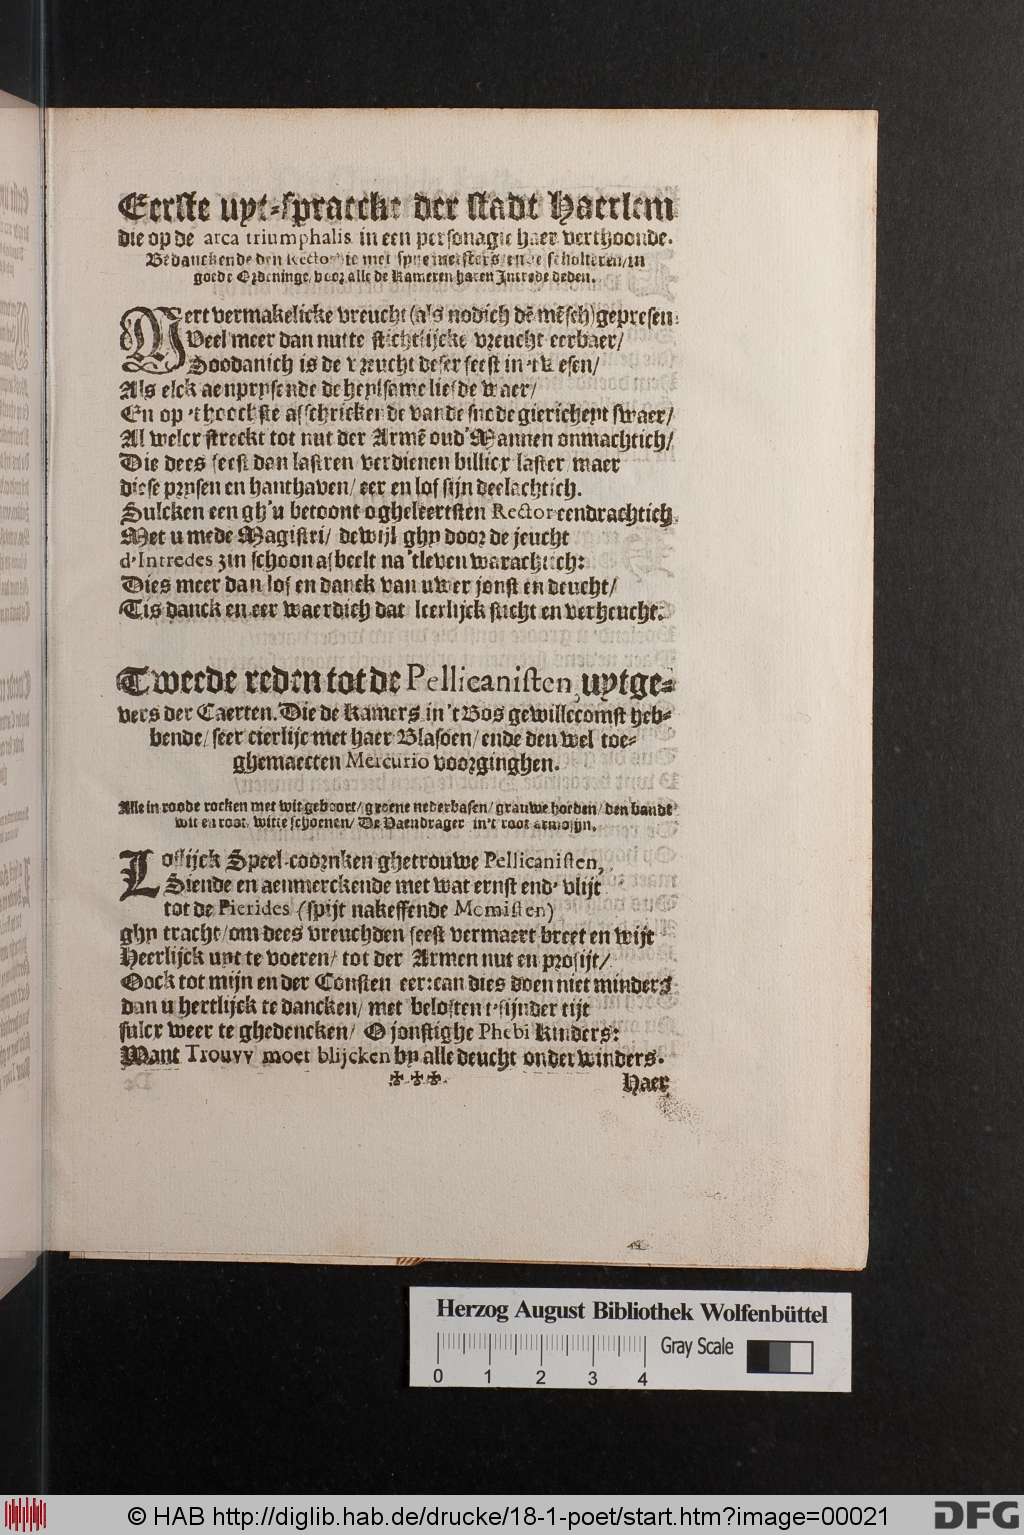 Eerste uyt-spraecke der stadt Haerlem
die op de arca triumphalis in een personagie haer verthoonde.
Bedanckende den Rector die met syne meesters, ende scholieren, in
goede Ordeninge, voor alle de Kameren haren Intrede deden.
Wert vermakelicke vreucht (als nodich dē mēsch) gepresen:
Veel meer dan nutte stichtlijcke vreucht eerbaer/
Soodanich is de vreucht deser feest in 't wesen/
Als elck aenprysende de heylsame liefde waer/
En op 't hoochste afschrickende vande snode giericheyt swaer/
Al welcx streckt tot nut der Armē oud' Mannen onmachtich/
Die dees feest dan lastren verdienen billicx laster maer
diese prysen en hanthaven/ eer en lof sijn deelachtich.
Sulcken een gh'u betoont o gheleertsten Rector eendrachtich
Met u mede Magistri/ dewijl ghy door de jeucht
d'Intredes zin schoon afbeelt na 'tleven warachtich:
Dies meer dan lof en danck van uwer jonst en deucht/
Tis danck en eer waerdich dat leerlijck sticht en verheucht.
Tweede reden tot de Pellicanisten, uytge-
vers der Caerten. Die de Kamers in 't Bos gewillecomst heb-
bende/ seer cierlijc met haer Blasoen/ ende den wel toe-
ghemaecten Mercurio voorginghen.
Alle in roode rocken met wit geboort/ groene nederbasen/ grauwe hoeden/ den bandt
wit en root, witte schoenen/ De Vaendrager in't root armosijn.
Loflijck Speel-coornken ghetrouwe Pellicanisten,
Siende en aenmerckende met wat ernst end' vlijt
tot de Pierides (spijt nakeffende Momisten)
ghy tracht/ om dees vreuchden feest vermaert breet en wijt
Heerlijck uyt te voeren/ tot der Armen nut en profijt/
Oock tot mijn en der Consten eer: can dies doen niet minders
dan u hertlijck te dancken/ met beloften t'sijnder tijt
sulcx weer te ghedencken/ O jonstighe Phebi Kinders:
Want Trouvv moet blijcken by alle deucht onderwinders.
✠ ✠ ✠.
Haer
Herzog August Bibliothek Wolfenbüttel
Gray Scale
0 1 2 3 4
© HAB http://diglib.hab.de/drucke/18-1-poet/start.htm?image=00021
DFG